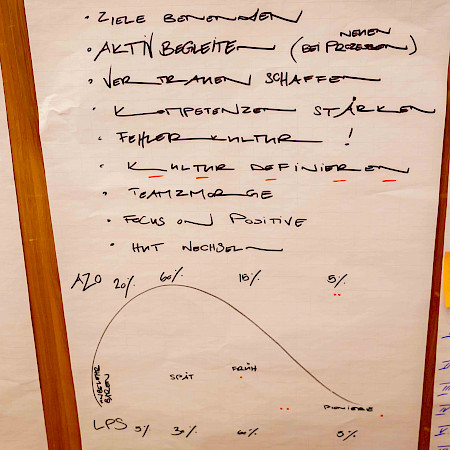 • ZIELE BENENNEN
NEUEN
• AKTIV BEGLEITEN (BEI PROZESSEN)
• VERTRAUEN SCHAFFEN
• KOMPETENZEN STÄRKEN
• FEHLERKULTUR !
• KULTUR DEFINIEREN
• TEAMZMORGE
• FOCUS ON POSITIVE
• HUT WECHSELN
AZO 20% 60% 15% 5%
UNBELEHR
BAREN
SPÄT FRÜH
PIONIERE
LPS 5% 30% 60% 5%